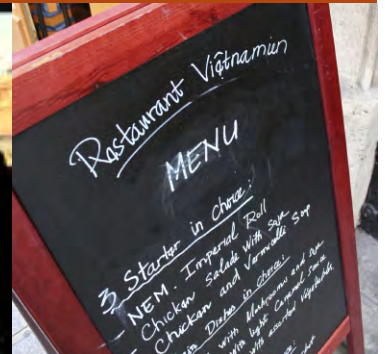 Restaurant Viêtnamien
MENU
3 Starter in Choice:
- NEM. Imperial Roll
- Chicken Salade with Saye
- Chicken and Vermicelli Sop
Dishes in Choice:
with Mushrooms and
with light Caramel Sauce
with assorted Vegetables